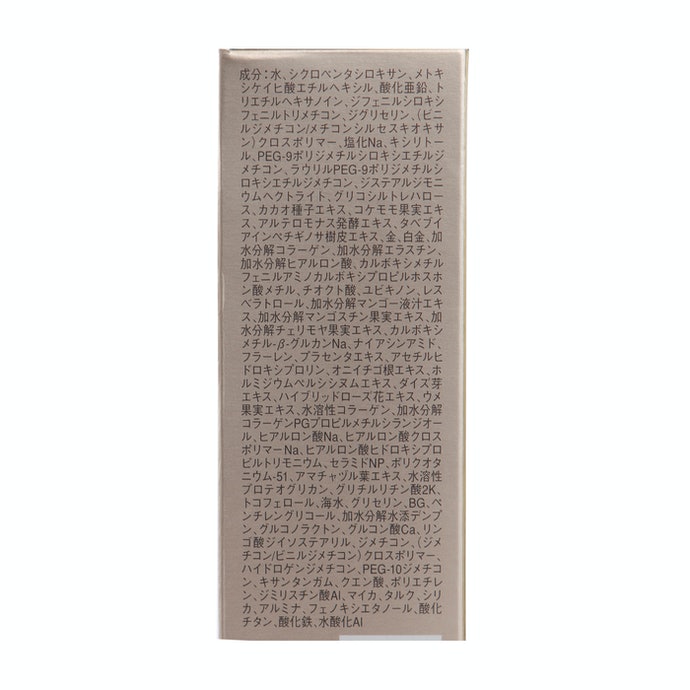 成分:水、シクロペンタシロキサン、メトキ
シケイヒ酸エチルヘキシル、酸化亜鉛、ト
リエチルヘキサノイン、ジフェニルシロキシ
フェニルトリメチコン、ジグリセリン、(ビニ
ルジメチコン/メチコンシルセスキオキサ
ン)クロスポリマー、塩化Na、キシリトー
ル、PEG-9ポリジメチルシロキシエチルジ
メチコン、ラウリルPEG-9ポリジメチルシ
ロキシエチルジメチコン、ジステアルジモニ
ウムヘクトライト、グリコシルトレハロー
ス、カカオ種子エキス、コケモモ果実エキ
ス、アルテロモナス発酵エキス、タベブイ
アインペチギノサ樹皮エキス、金、白金、加
水分解コラーゲン、加水分解エラスチン、
加水分解ヒアルロン酸、カルボキシメチル
フェニルアミノカルボキシプロピルホスホ
ン酸メチル、チオクト酸、ユビキノン、レス
ベラトロール、加水分解マンゴー液汁エキ
ス、加水分解マンゴスチン果実エキス、加
水分解チェリモヤ果実エキス、カルボキシ
メチル-β-グルカンNa、ナイアシンアミド、
フラーレン、プラセンタエキス、アセチルヒ
ドロキシプロリン、オニイチゴ根エキス、ホ
ルミジウムペルシシヌムエキス、ダイズ芽
エキス、ハイブリッドローズ花エキス、ウメ
果実エキス、水溶性コラーゲン、加水分解
コラーゲンPGプロピルメチルシランジオー
ル、ヒアルロン酸Na、ヒアルロン酸クロス
ポリマーNa、ヒアルロン酸ヒドロキシプロ
ピルトリモニウム、セラミドNP、ポリクオタ
ニウム-51、アマチャヅル葉エキス、水溶性
プロテオグリカン、グリチルリチン酸2K、
トコフェロール、海水、グリセリン、BG、ペ
ンチレングリコール、加水分解水添デンプ
ン、グルコノラクトン、グルコン酸Ca、リン
ゴ酸ジイソステアリル、ジメチコン、(ジメ
チコン/ビニルジメチコン)クロスポリマー、
ハイドロゲンジメチコン、PEG-10ジメチコ
ン、キサンタンガム、クエン酸、ポリエチレ
ン、ジミリスチン酸Al、マイカ、タルク、シリ
カ、アルミナ、フェノキシエタノール、酸化
チタン、酸化鉄、水酸化Al